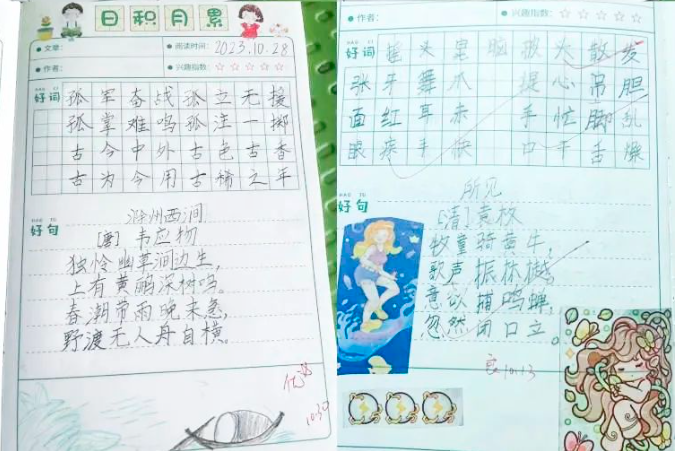 日积月累
文章:
阅读时间: 2023.10.28
作者:
兴趣指数: ☆☆☆☆☆
好词
孤军奋战孤立无援
孤掌难鸣孤注一掷
古今中外古色古香
古为今用古稀之年
好句
滁州西涧
[唐] 韦应物
独怜幽草涧边生,
上有黄鹂深树鸣。
春潮带雨晚来急,
野渡无人舟自横。
优
10.30
作者:
兴趣指数: ☆☆☆☆☆
好词
摇头晃脑披头散发
张牙舞爪 提心吊胆
面红耳赤 手忙脚乱
眼疾手快 口干舌燥
好句
所见
[清] 袁枚
牧童骑黄牛,
歌声振林樾。
意欲捕鸣蝉,
忽然闭口立。
10.13